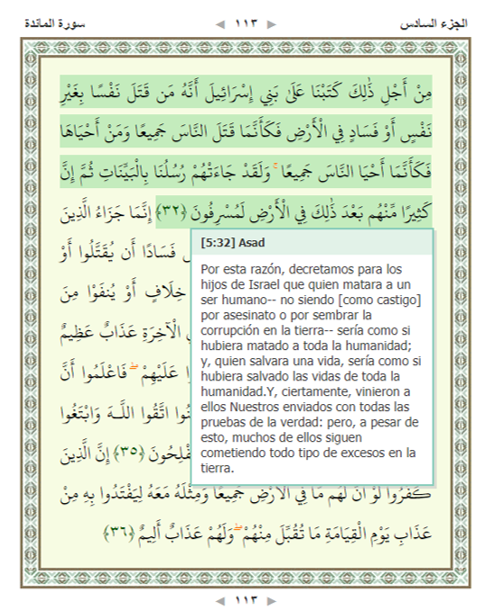 الجزء السادس ◄ ١١٣ ► سورة المائدة
مِنْ أَجْلِ ذَٰلِكَ كَتَبْنَا عَلَىٰ بَنِي إِسْرَائِيلَ أَنَّهُ مَن قَتَلَ نَفْسًا بِغَيْرِ
نَفْسٍ أَوْ فَسَادٍ فِي الْأَرْضِ فَكَأَنَّمَا قَتَلَ النَّاسَ جَمِيعًا وَمَنْ أَحْيَاهَا
فَكَأَنَّمَا أَحْيَا النَّاسَ جَمِيعًا ۚ وَلَقَدْ جَاءَتْهُمْ رُسُلُنَا بِالْبَيِّنَاتِ ثُمَّ إِنَّ
كَثِيرًا مِّنْهُم بَعْدَ ذَٰلِكَ فِي الْأَرْضِ لَمُسْرِفُونَ ﴿٣٢﴾ إِنَّمَا جَزَاءُ الَّذِينَ
فَسَادًا أَن يُقَتَّلُوا أَوْ
خِلَافٍ أَوْ يُنفَوْا مِنَ
الْآخِرَةِ عَذَابٌ عَظِيمٌ
عَلَيْهِمْ ۖ فَاعْلَمُوا أَنَّ
اتَّقُوا اللَّـهَ وَابْتَغُوا
﴿٣٥﴾ إِنَّ الَّذِينَ
كَفَرُوا لَوْ أَنَّ لَهُم مَّا فِي الْأَرْضِ جَمِيعًا وَمِثْلَهُ مَعَهُ لِيَفْتَدُوا بِهِ مِنْ
عَذَابِ يَوْمِ الْقِيَامَةِ مَا تُقُبِّلَ مِنْهُمْ ۖ وَلَهُمْ عَذَابٌ أَلِيمٌ ﴿٣٦﴾
[5:32] Asad
Por esta razón, decretamos para los
hijos de Israel que quien matara a un
ser humano-- no siendo [como castigo]
por asesinato o por sembrar la
corrupción en la tierra-- sería como si
hubiera matado a toda la humanidad;
y, quien salvara una vida, sería como si
hubiera salvado las vidas de toda la
humanidad.Y, ciertamente, vinieron a
ellos Nuestros enviados con todas las
pruebas de la verdad: pero, a pesar de
esto, muchos de ellos siguen
cometiendo todo tipo de excesos en la
tierra.
◄ ١١٣ ►